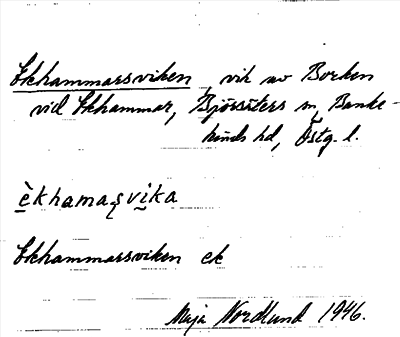 Ekhammarsviken, vik av Borken
vid Ekhammar, Björsäters sn, Banke-
kinds hd, Östg. l.
èkhamaʂvika
Ekhammarsviken ek
Maja Nordlund 1946.